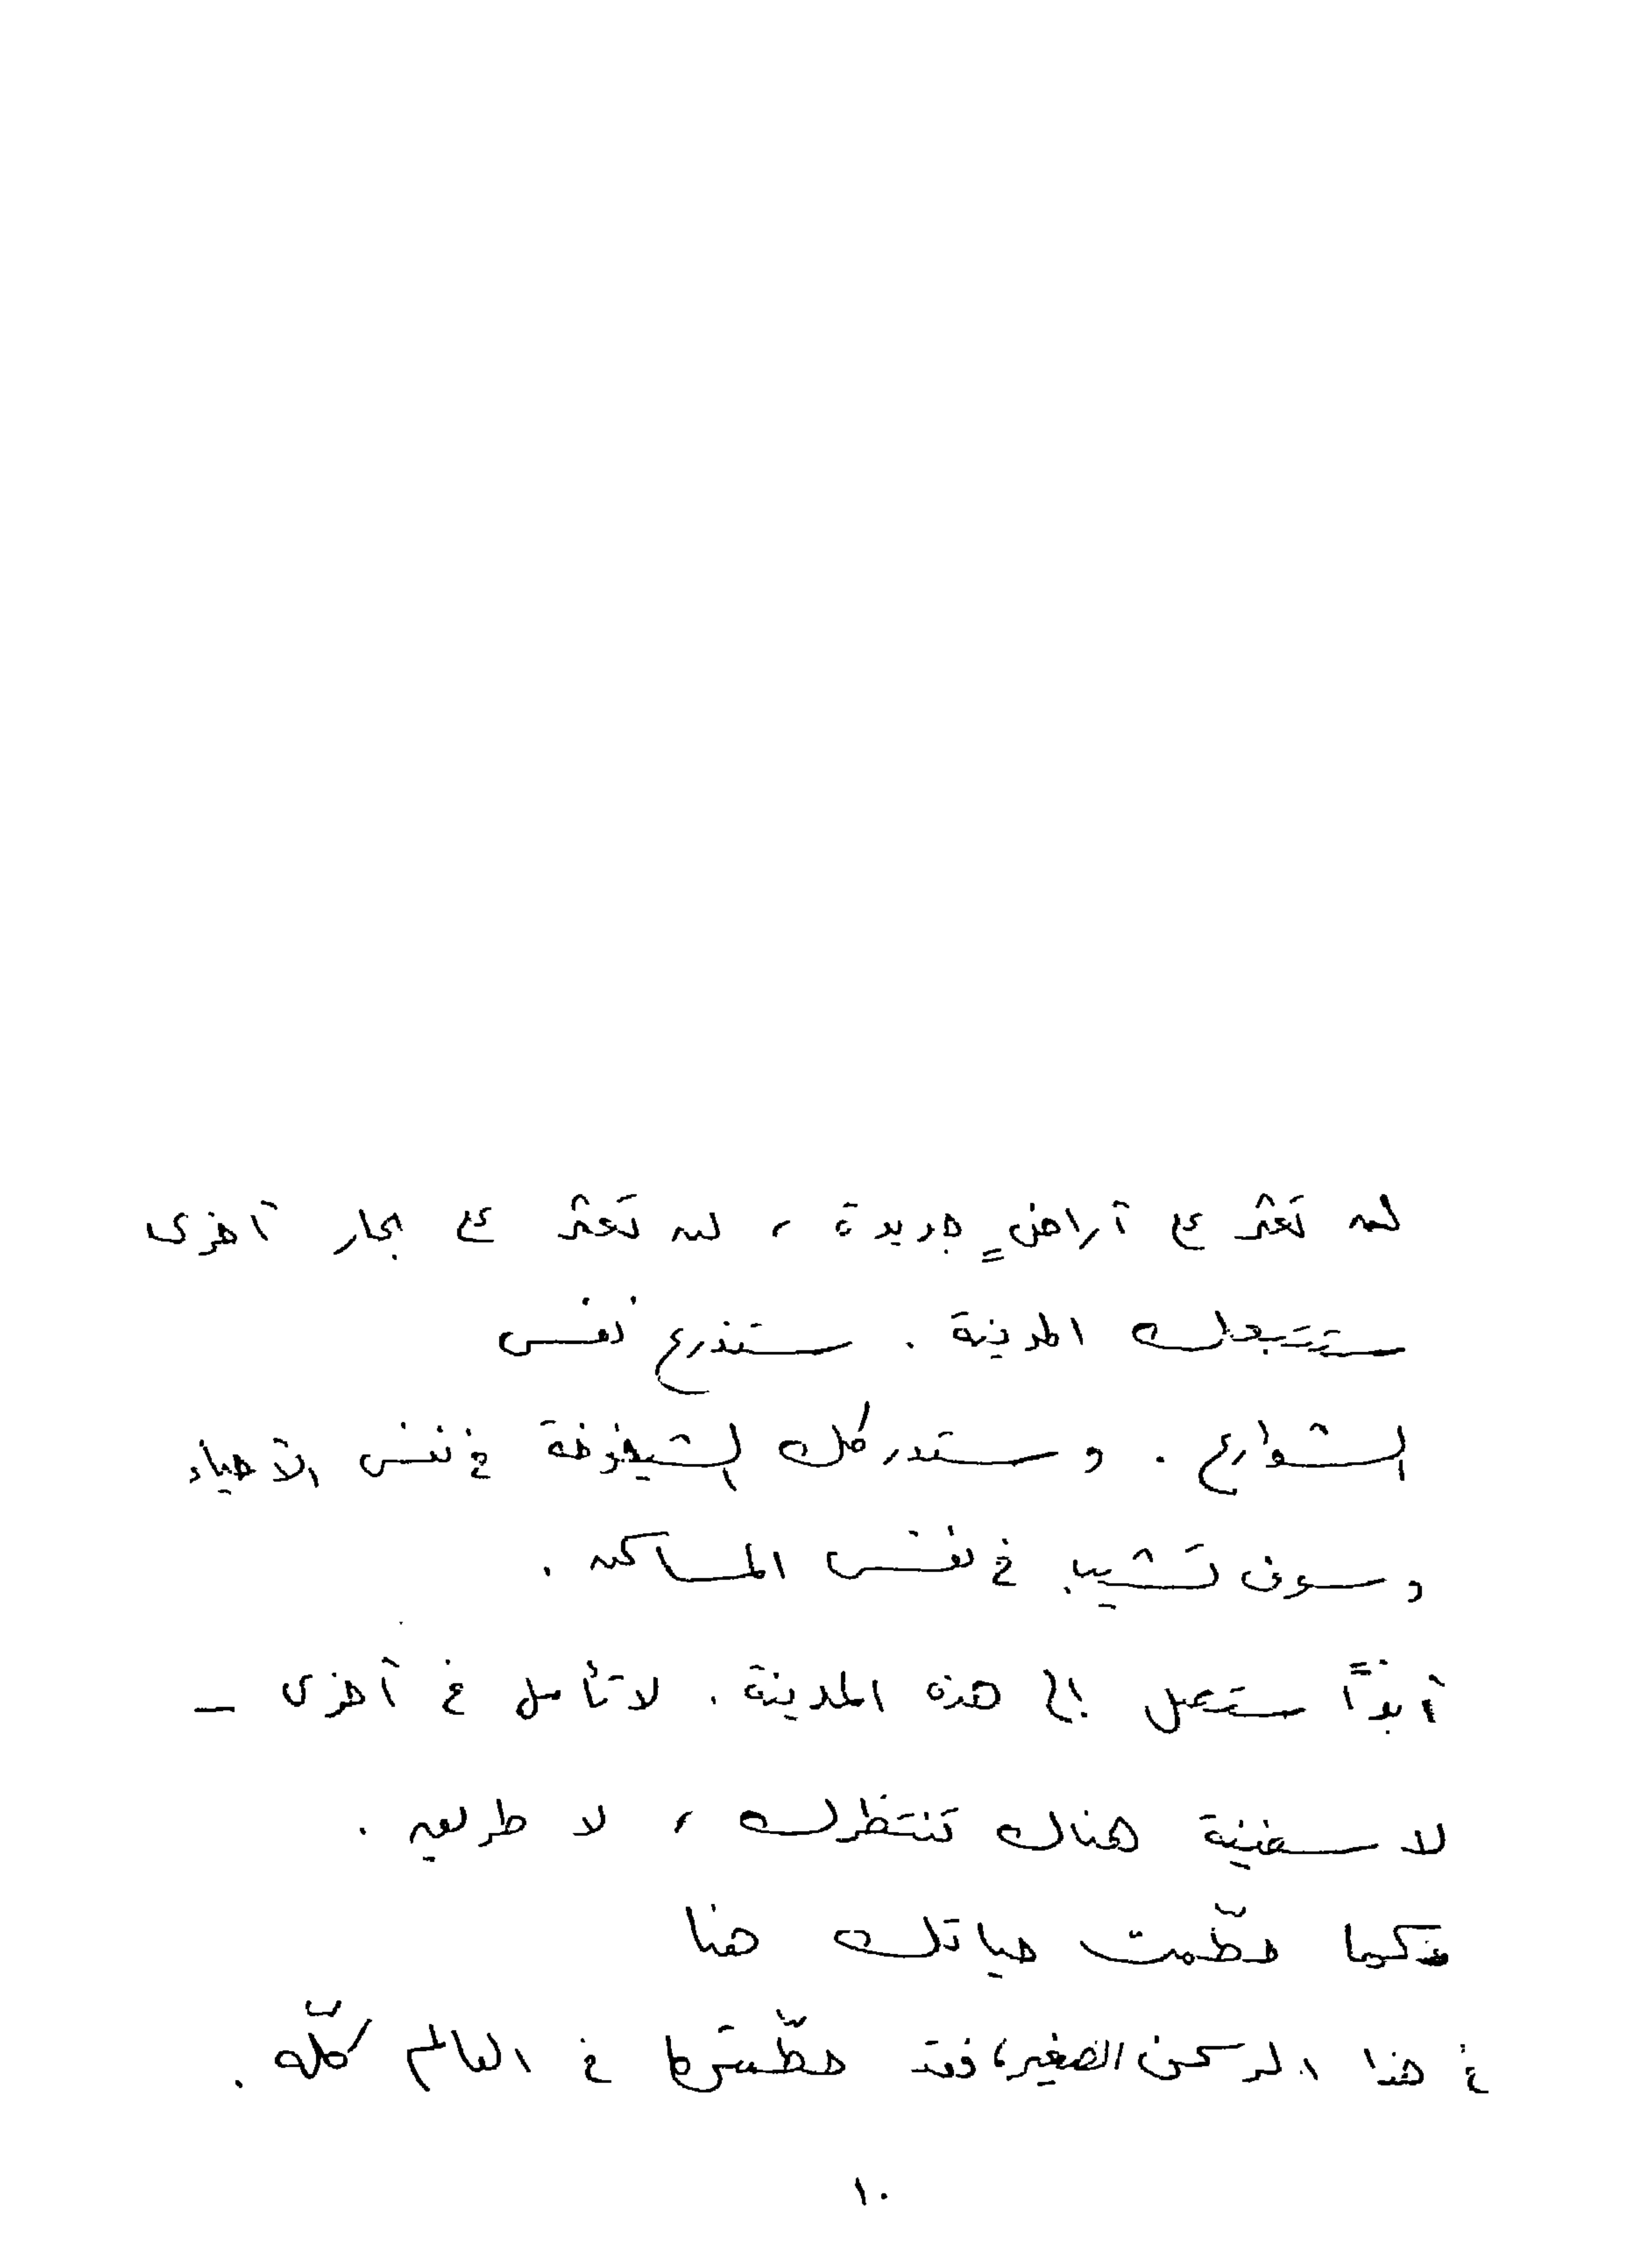 لن تعثر على أراضٍ جديدة ، لن تعثر على بحار أخرى
ستتبعك المدينة . ستذرع نفس
الشوارع . وستدركك الشيخوخة في نفس الأحياء
وسوف تشيب في نفس المساكن .
أبداً ستصل إلى هذه المدينة . لا تأمل في أخرى –
لا سفينة هناك تنتظرك ، لا طريق .
فكما حطّمت حياتك هنا
في هذا الركن الصغير، فقد حطّمتها في العالم كلّه .
١٠